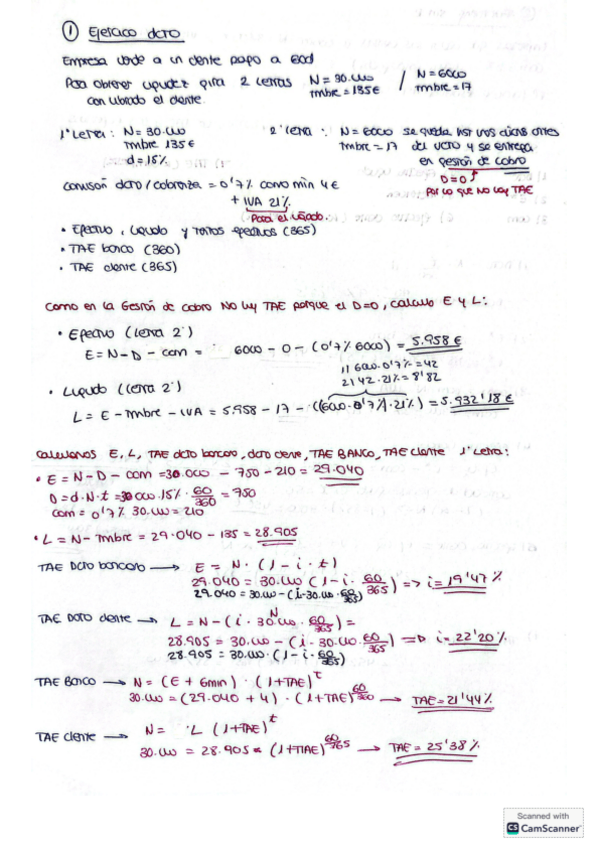 ① Ejercicio dcto
Empresa vende a un cliente pago a 60d
Para obtener liquidez gira 2 letras N = 30.000 / N = 6000
con librado el cliente. timbre = 135€ timbre = 17
1ª Letra : N = 30.000 2ª letra : N = 6000 se queda
timbre 135€ timbre = 17 del vcto y se entrega
d = 15% en gestión de cobro
comisión dcto/cobranza = 0'7% como mín 4€ D=0
+ IVA 21% por lo que No hay TAE
Para el librado.
• Efectivo, líquido y tantos efectivos (365)
• TAE banco (360)
• TAE cliente (365)
Como en la Gestión de cobro No hay TAE porque el D=0, calculo E y L:
• Efectivo (letra 2ª)
E = N - D - com = 6000 - 0 - (0'7% 6000) = 5.958€
1) 6000·0'7% = 42
2) 42·21% = 8'82
• Líquido (letra 2ª)
L = E - timbre - IVA = 5.958 - 17 - ((6000·0'7%)·21%) = 5.932'18€
Calculamos E, L, TAE dcto bancario, dcto cliente, TAE BANCO, TAE cliente 1ª letra:
• E = N - D - com = 30.000 - 750 - 210 = 29.040
D = d·N·t = 30000·15%·60/360 = 750
com = 0'7% 30.000 = 210
• L = N - timbre = 29.040 - 135 = 28.905
TAE Dcto bancario → E = N · (1 - i · t)
29.040 = 30.000 (1 - i · 60/365) => i = 19'47%
29.040 = 30.000 - (i · 30.000 · 60/365)
TAE DCTO cliente → L = N - (i · 30.000 · 60/365) =
N
28.905 = 30.000 - (i · 30.000 · 60/365) => i = 22'20%
28.905 = 30.000 · (1 - i · 60/365)
TAE Banco → N = (E + Gmin) · (1+TAE)^t
30.000 = (29.040 + 4) · (1+TAE)^60/360 → TAE = 21'44%
TAE cliente → N = L (1+TAE)^t
30.000 = 28.905 · (1+TAE)^60/365 → TAE = 25'38%
Scanned with
CS CamScanner